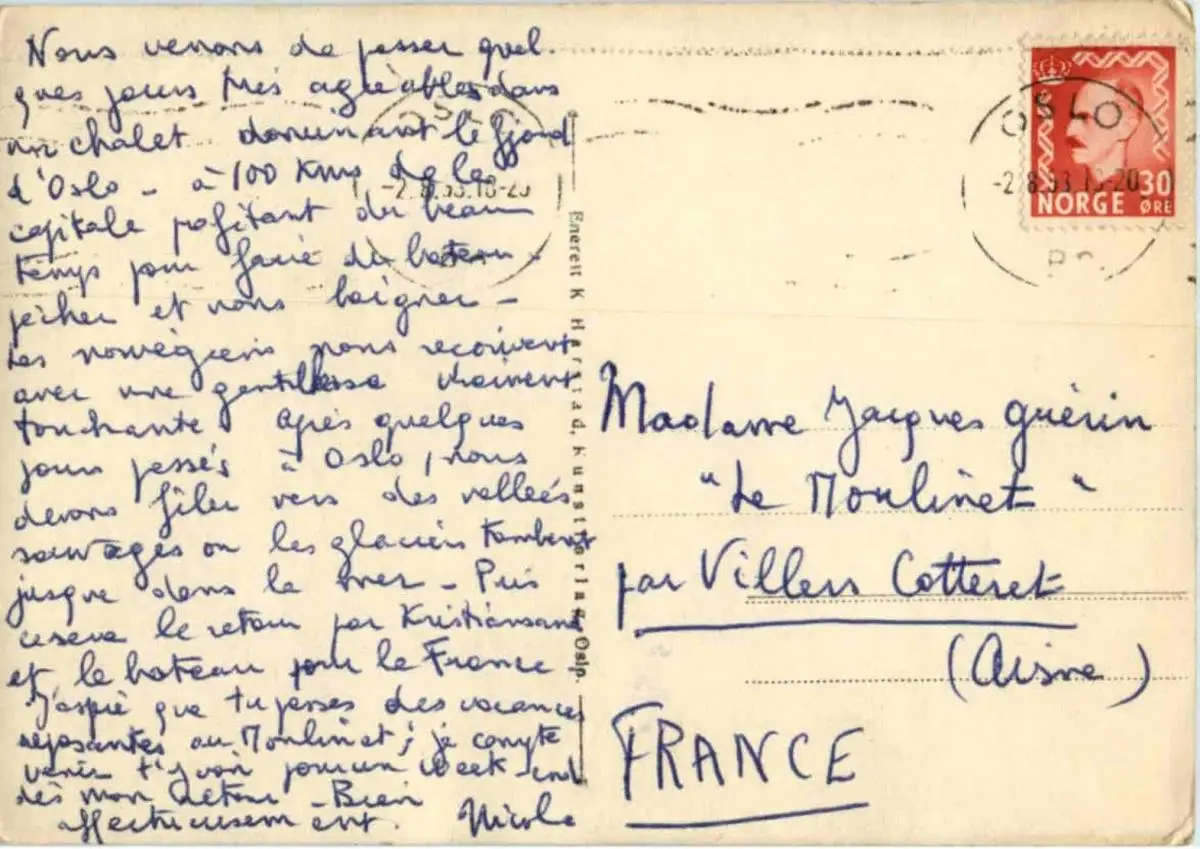 Nous venons de passer quel-
ques jours très agréables dans
un chalet dominant le fjord
d'Oslo - à 100 Kms de la
capitale profitant du beau
temps pour faire du bateau -
pêcher et nous baigner -
Les norvégiens nous reçoivent
avec une gentillesse vraiment
touchante après quelques
jours passés à Oslo, nous
devons filer vers des vallées
sauvages où les glaciers tombent
jusque dans la mer - Puis
ce sera le retour par Kristiansand
et le bateau pour la France
J'espère que tu passes des vacances
reposantes au Moulinet ; je compte
venir t'y voir pour un week-end
dès mon retour - Bien
affectueusement. Nicole
Enerett K Harstad, Kunstforlag, Oslo.
OSLO
-2.8.53.18-20
OSLO
-2.8.53.18-20
NORGE 30 ØRE
Madame Jacques Guérin
"Le Moulinet"
par Villers Cotteret
(Aisne)
FRANCE